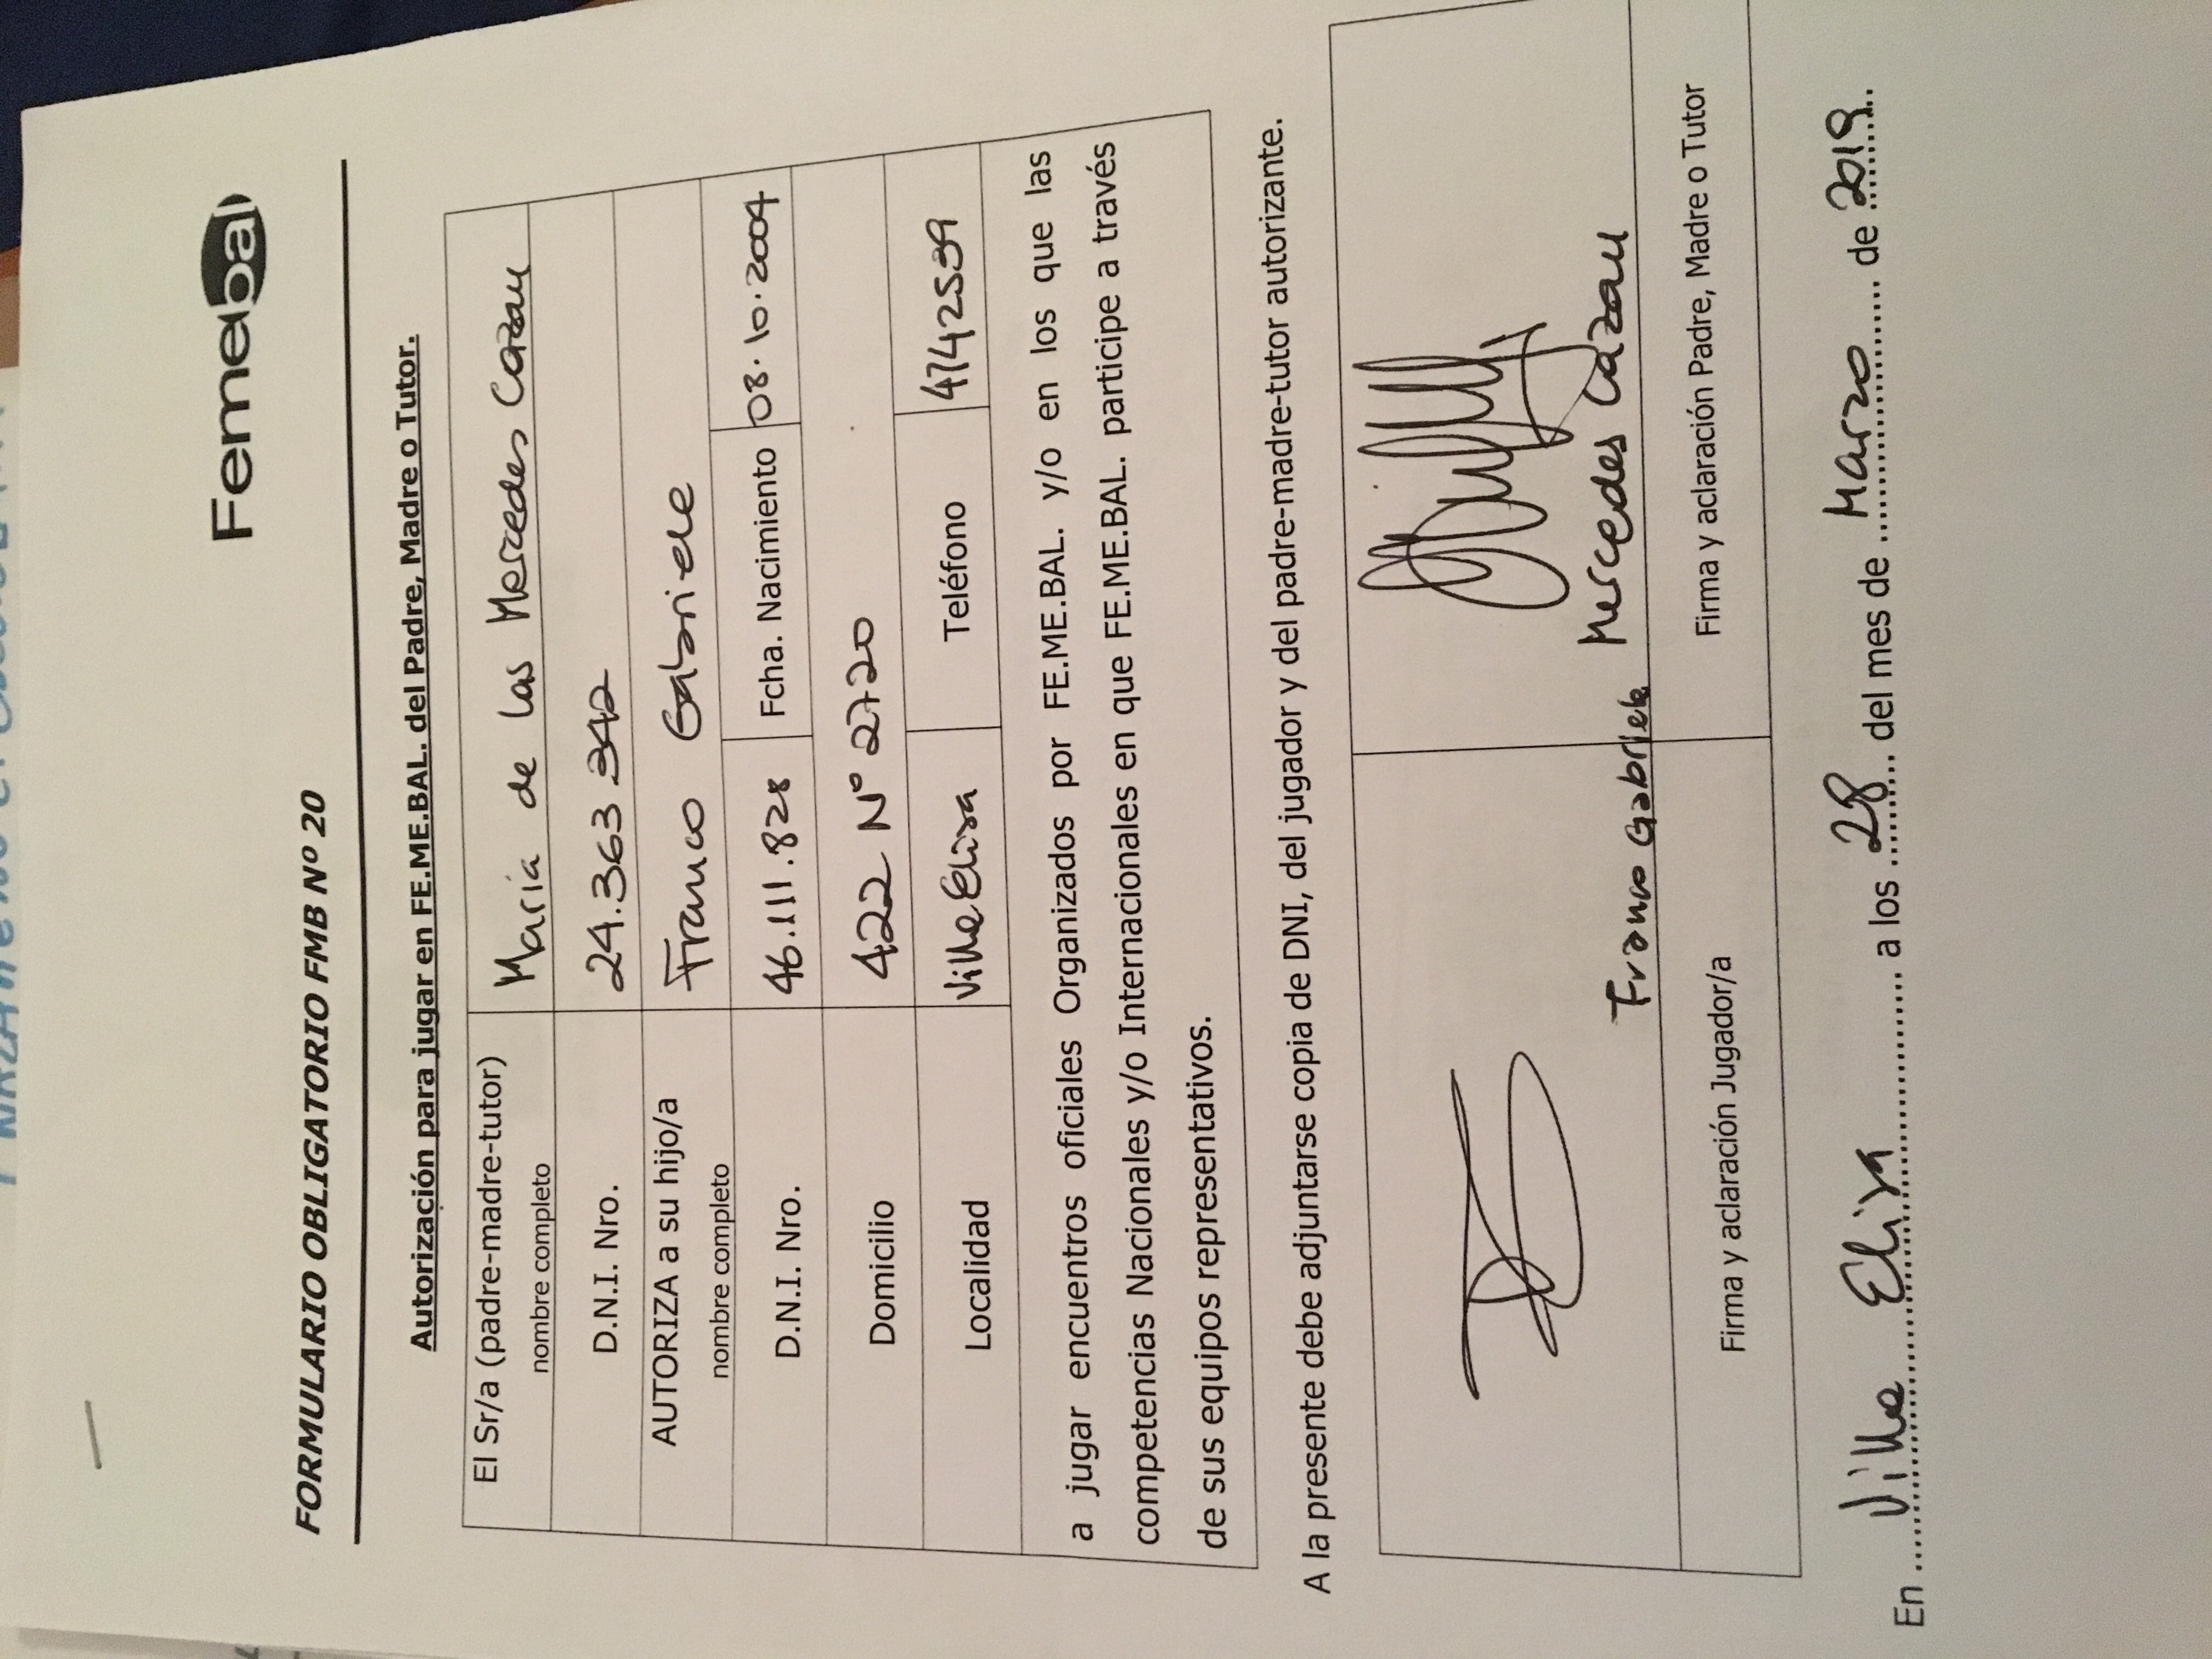 Femebal
FORMULARIO OBLIGATORIO FMB Nº 20
Autorización para jugar en FE.ME.BAL. del Padre, Madre o Tutor.
El Sr/a (padre-madre-tutor) nombre completo María de las Mercedes Cazau
D.N.I. Nro. 24.363.342
AUTORIZA a su hijo/a nombre completo Franco Gabriele
D.N.I. Nro. 46.111.828 Fcha. Nacimiento 08.10.2004
Domicilio 422 Nº 2720
Localidad Villa Elisa Teléfono 4742539
a jugar encuentros oficiales Organizados por FE.ME.BAL. y/o en los que las
competencias Nacionales y/o Internacionales en que FE.ME.BAL. participe a través
de sus equipos representativos.
A la presente debe adjuntarse copia de DNI, del jugador y del padre-madre-tutor autorizante.
Franco Gabriele Mercedes Cazau
Firma y aclaración Jugador/a Firma y aclaración Padre, Madre o Tutor
En Villa Elisa a los 28 del mes de Marzo de 2019